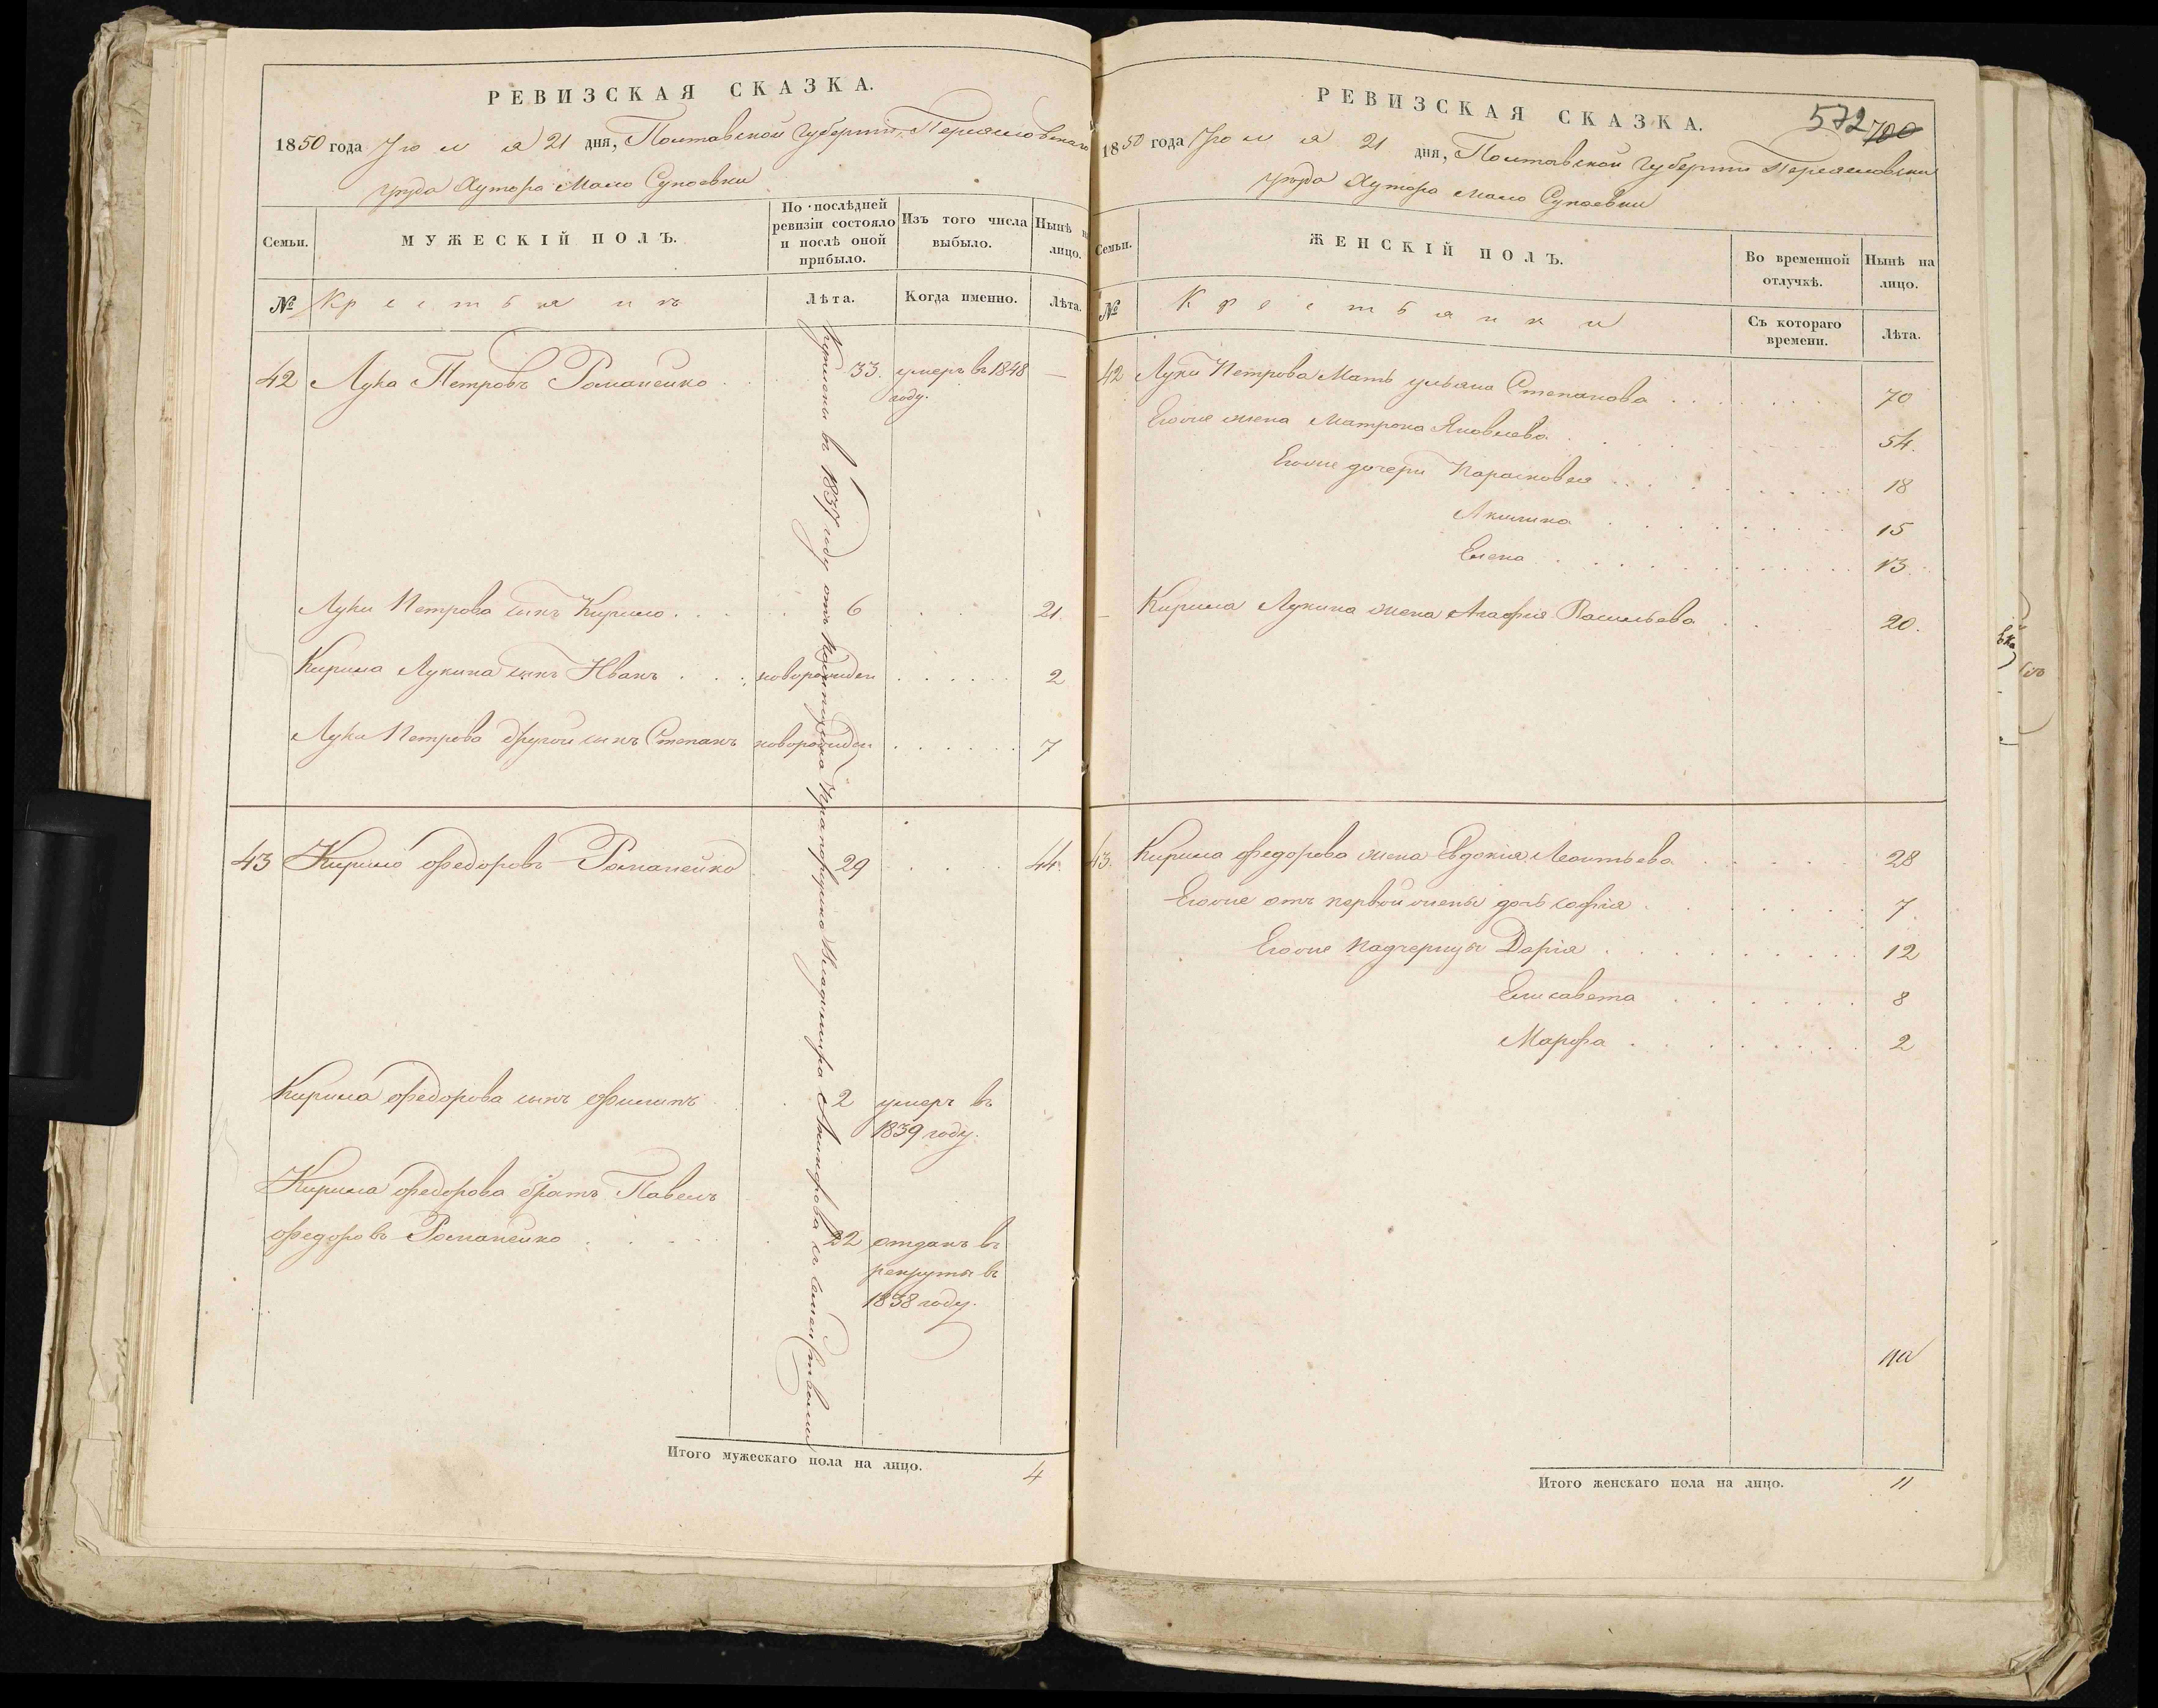 РЕВИЗСКАЯ СКАЗКА.
1850 года Июля 21 дня, Полтавской Губернии, Переясловскаго
уезда Хутора Мало Супоевки
Семьи.
МУЖЕСКІЙ ПОЛЪ.
По послѣдней ревизіи состояло и послѣ оной прибыло.
Изъ того числа выбыло.
Нынѣ на лицо.
№
Крестьянъ
Лѣта.
Когда именно.
Лѣта.
42 Лука Петровъ Романенко 33. умеръ въ 1848 году. —
Луки Петрова сынъ Кирило 6 21
Кирила Лукина сынъ Иванъ новорожден 2
Луки Петрова другой сынъ Степанъ новорожден 7
43 Кирило Федоровъ Романенко 29 44
Кирила Федорова сынъ Филипъ 2 умеръ въ
1839 году.
Кирила Федорова братъ Павелъ
Федоровъ Романенко 22 отданъ въ
рекруты въ
1838 году.
въ 1837 году отъ Прапорщика Владимира съ
Итого мужескаго пола на лицо. 4
РЕВИЗСКАЯ СКАЗКА.
572 700
1850 года Июля 21 дня, Полтавской Губернии Переясловска
уезда Хутора Мало Супоевки
Семьи.
ЖЕНСКІЙ ПОЛЪ.
Во временной отлучкѣ.
Нынѣ на лицо.
№
Крестьянки
Съ котораго времени.
Лѣта.
42 Луки Петрова Мать ульяна Степанова 70
Егоже жена Матрона Яковлева 54.
Егоже дочери Парасковея 18
Акилина 15
Елена 13
— Кирила Лукина жена Агафия Васильева 20.
43. Кирила Федорова жена Евдокия Леонтьева 28
Егоже отъ первой жены дочь софия 7.
Егоже падчерицы Дария 12
Елисавета 8
Марфа 2
Итого женскаго пола на лицо. 11